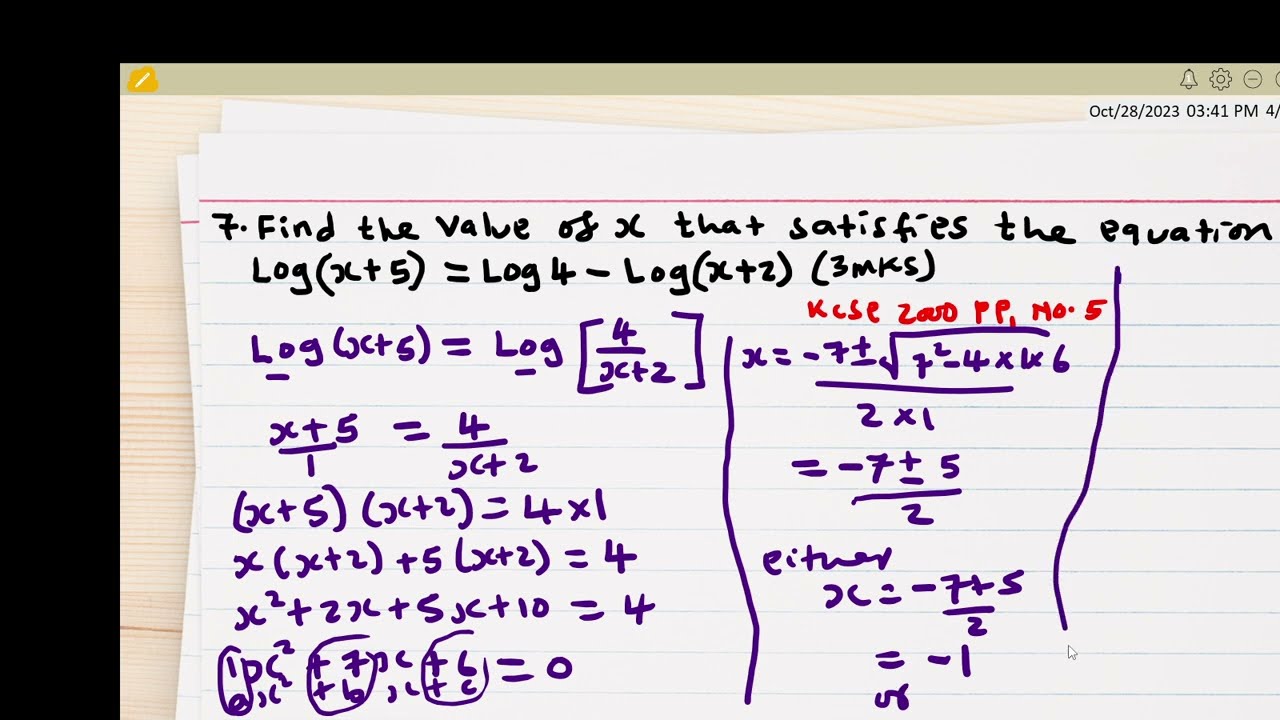 Oct/28/2023 03:41 PM 4/
7. Find the value of x that satisfies the equation
Log(x+5) = Log 4 - Log(x+2) (3mks)
KCSE 2000 PP1 No. 5
Log(x+5) = Log [4/(x+2)]
(x+5)/1 = 4/(x+2)
(x+5)(x+2) = 4×1
x(x+2)+5(x+2) = 4
x²+2x+5x+10 = 4
1x² + 7x + 6 = 0
ax² + bx + c
x = (-7 ± √(7²-4×1×6))/(2×1)
= (-7 ± 5)/2
either
x = (-7+5)/2
= -1
or